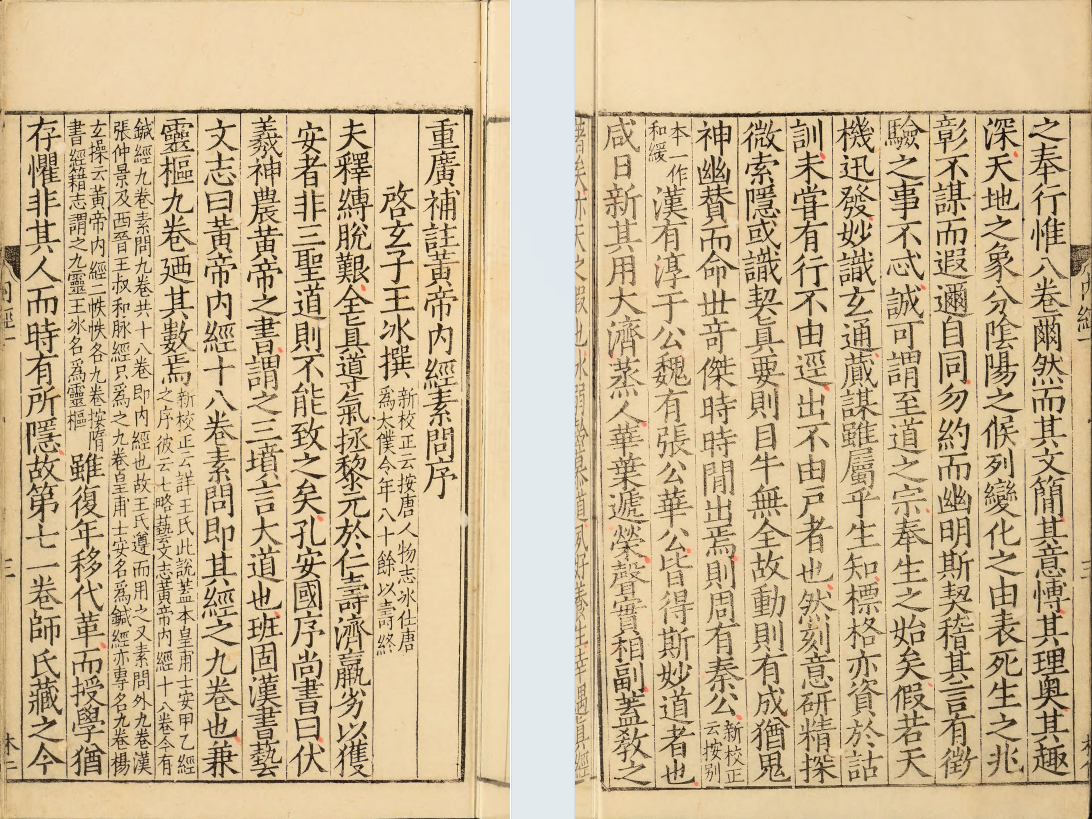 重廣補註黃帝內經素問序
啓玄子王冰撰 新校正云按唐人物志冰仕唐
為太僕令年八十餘以壽終
夫釋縛脫艱全真導氣拯黎元於仁壽濟羸劣以獲
安者非三聖道則不能致之矣孔安國序尚書曰伏
羲神農黃帝之書謂之三墳言大道也班固漢書藝
文志曰黃帝內經十八卷素問即其經之九卷也兼
靈樞九卷廼其數焉 新校正云詳王氏此說蓋本皇甫士安甲乙經
之序彼云七略藝文志黃帝內經十八卷今有
鍼經九卷素問九卷共十八卷即內經也故王氏遵而用之又素問外九卷漢
張仲景及西晉王叔和脉經只爲之九卷皇甫士安名爲鍼經亦專名九卷楊
玄操云黃帝內經二帙帙各九卷按隋
書經籍志謂之九靈王冰名爲靈樞
雖復年移代革而授學猶
存懼非其人而時有所隱故第七一卷師氏藏之今
之奉行惟八卷爾然而其文簡其意愽其理奧其趣
深天地之象分陰陽之候列變化之由表死生之兆
彰不謀而遐邇自同勿約而幽明斯契稽其言有徵
驗之事不忒誠可謂至道之宗奉生之始矣假若天
機迅發妙識玄通蕆謀雖屬乎生知標格亦資於詁
訓未甞有行不由逕出不由戶者也然刻意研精探
微索隱或識契真要則目牛無全故動則有成猶鬼
神幽賛而命世竒傑時時閒出焉則周有秦公 新校正
云按別
本一作
和緩
漢有淳于公魏有張公華公皆得斯妙道者也
咸日新其用大濟蒸人華葉遞榮聲實相副蓋教之